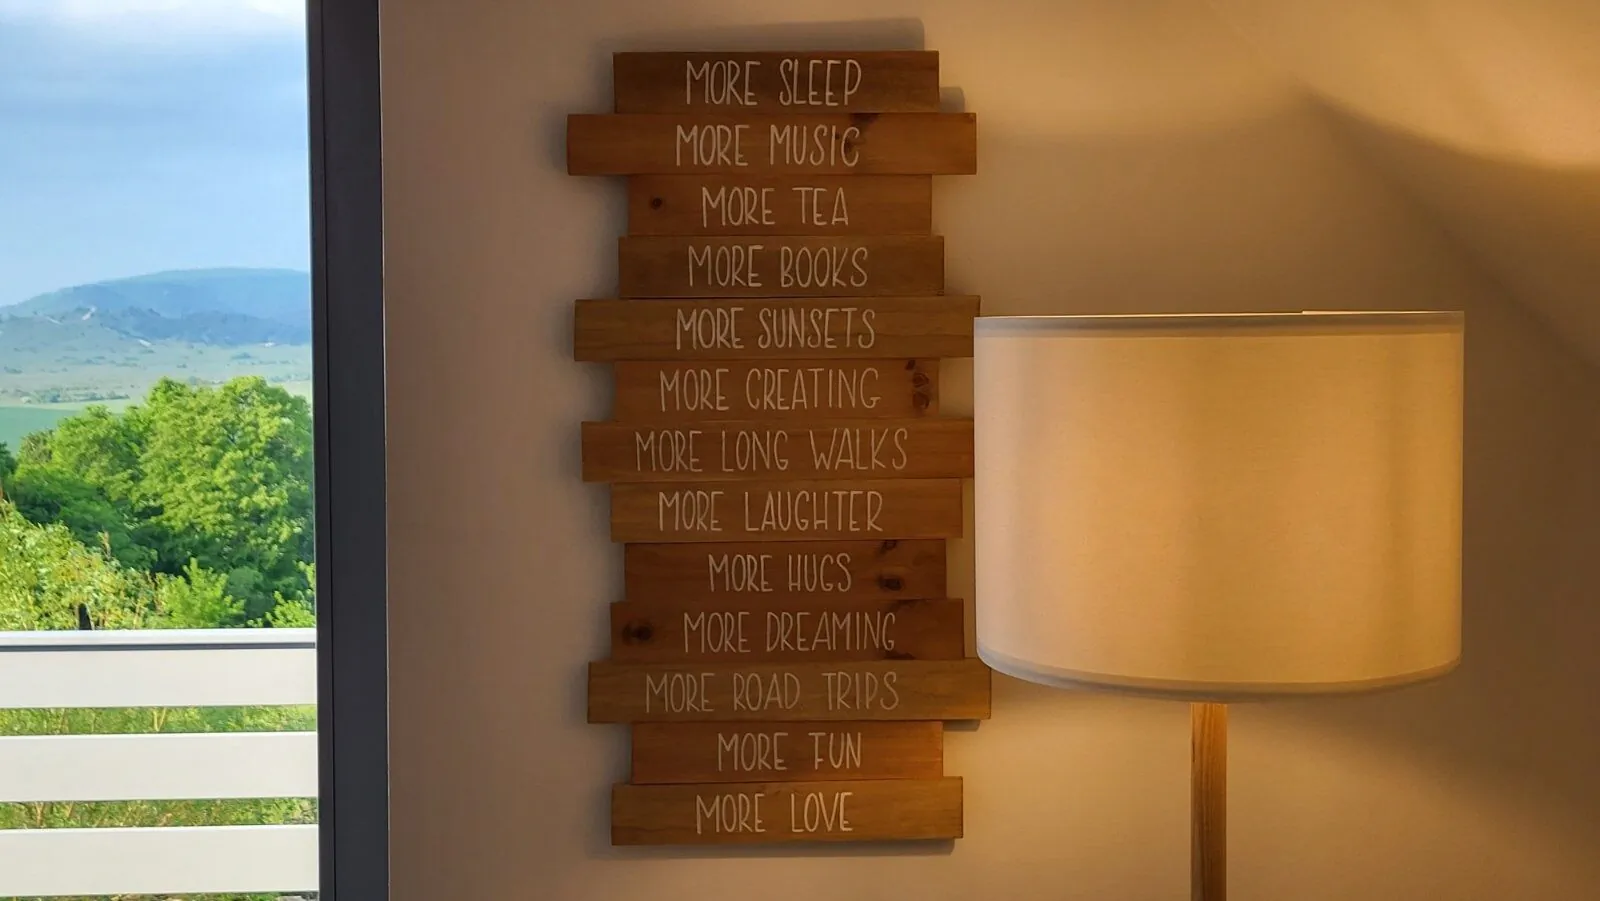 MORE SLEEP
MORE MUSIC
MORE TEA
MORE BOOKS
MORE SUNSETS
MORE CREATING
MORE LONG WALKS
MORE LAUGHTER
MORE HUGS
MORE DREAMING
MORE ROAD TRIPS
MORE FUN
MORE LOVE